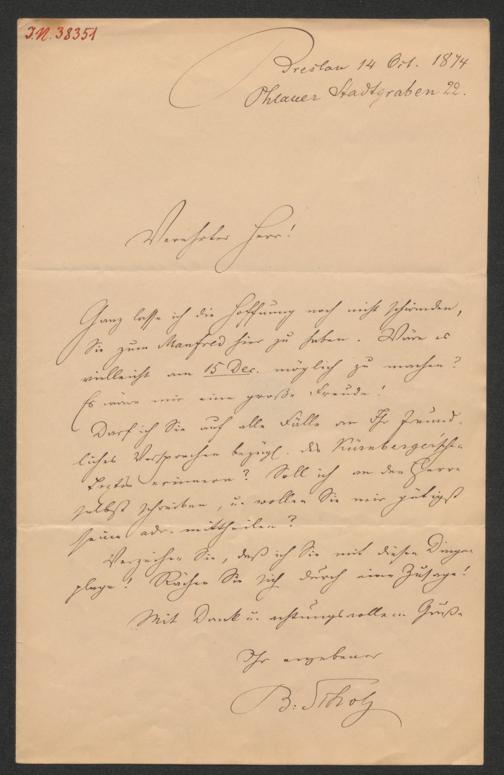 I.N. 38351
Breslau 14 Oct. 1874
Ohlauer Stadtgraben 22.
Verehrter Herr!
Ganz lasse ich die Hoffnung noch nicht schwinden,
Sie zum Manfred hier zu haben. Wäre es
vielleicht am 15 Dec. möglich zu machen?
Es wäre mir eine große Freude!
Darf ich Sie auf alle Fälle an Ihr freund-
liches Versprechen bezügl. des Kürnberger'schen
Textes erinnern? Soll ich an den Herrn
selbst schreiben, u. wollen Sie mir gütigst
seine adr. mittheilen?
Verzeihen Sie, daß ich Sie mit diesen Dingen
plage! Rächen Sie sich durch eine Zusage!
Mit Dank u. achtungsvollem Gruße
Ihr ergebener
B. Scholz